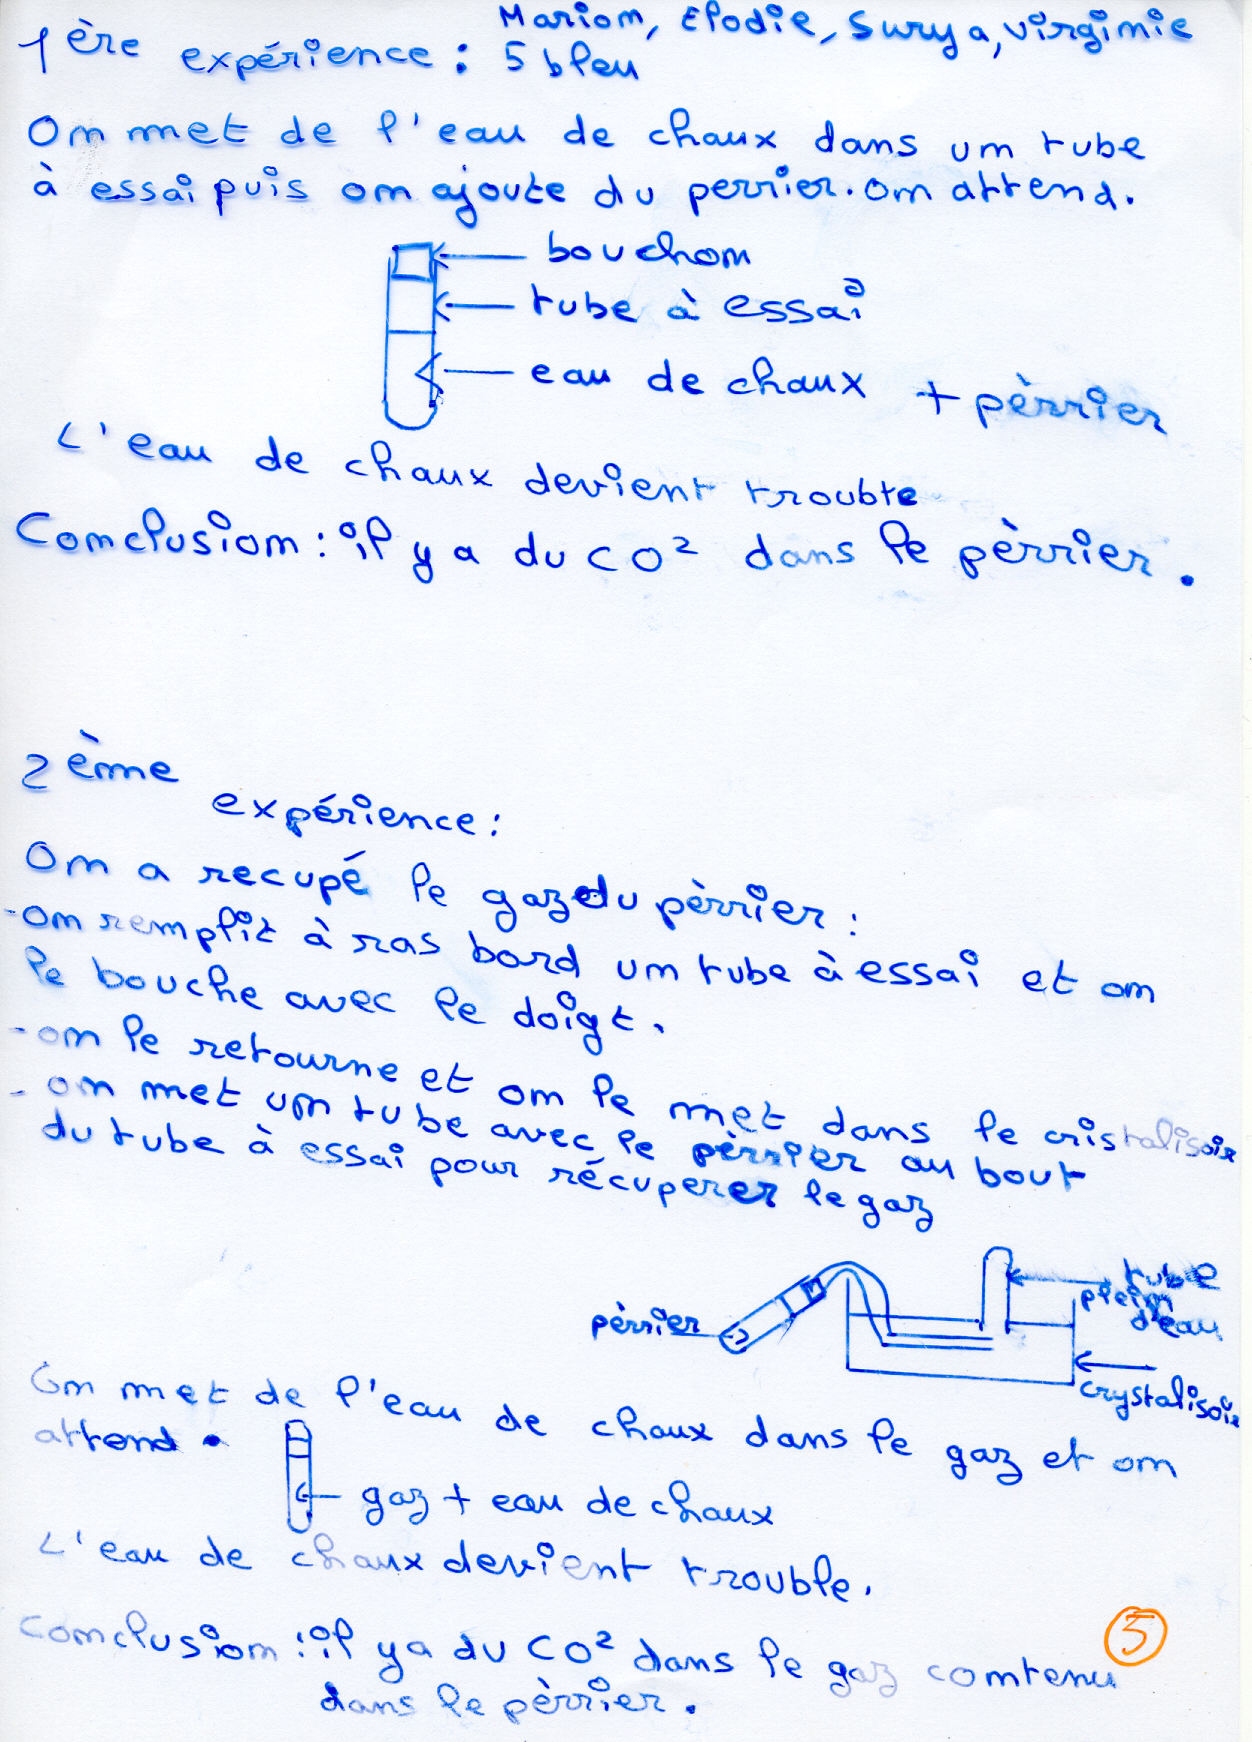 Marion, Elodie, Surya, Virginie
1ère expérience : 5 bleu
On met de l'eau de chaux dans un tube
à essai puis on ajoute du perrier. on attend.
bouchon
tube à essai
eau de chaux + pèrrier
L'eau de chaux devient trouble
Conclusion : il y a du CO² dans le pèrrier.
2ème expérience :
On a recupé le gaz du pèrrier :
- on remplit à ras bord un tube à essai et on
le bouche avec le doigt.
- on le retourne et on le met dans le cristalisoir
- on met un tube avec le pèrrier au bout
du tube à essai pour récuperer le gaz
tube
plein
d'eau
pèrrier
crystalisoir
On met de l'eau de chaux dans le gaz et on
attend.
gaz + eau de chaux
L'eau de chaux devient trouble.
Conclusion : il y a du CO² dans le gaz contenu
dans le pèrrier.
5